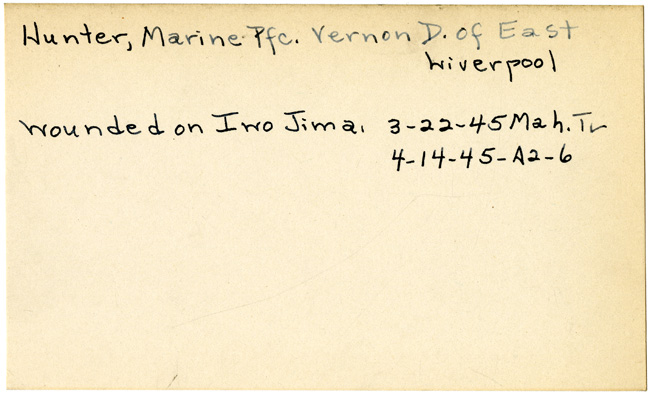 Hunter, Marine Pfc. Vernon D. of East
Liverpool
wounded on Iwo Jima. 3-22-45 Mah. Tr
4-14-45-A2-6